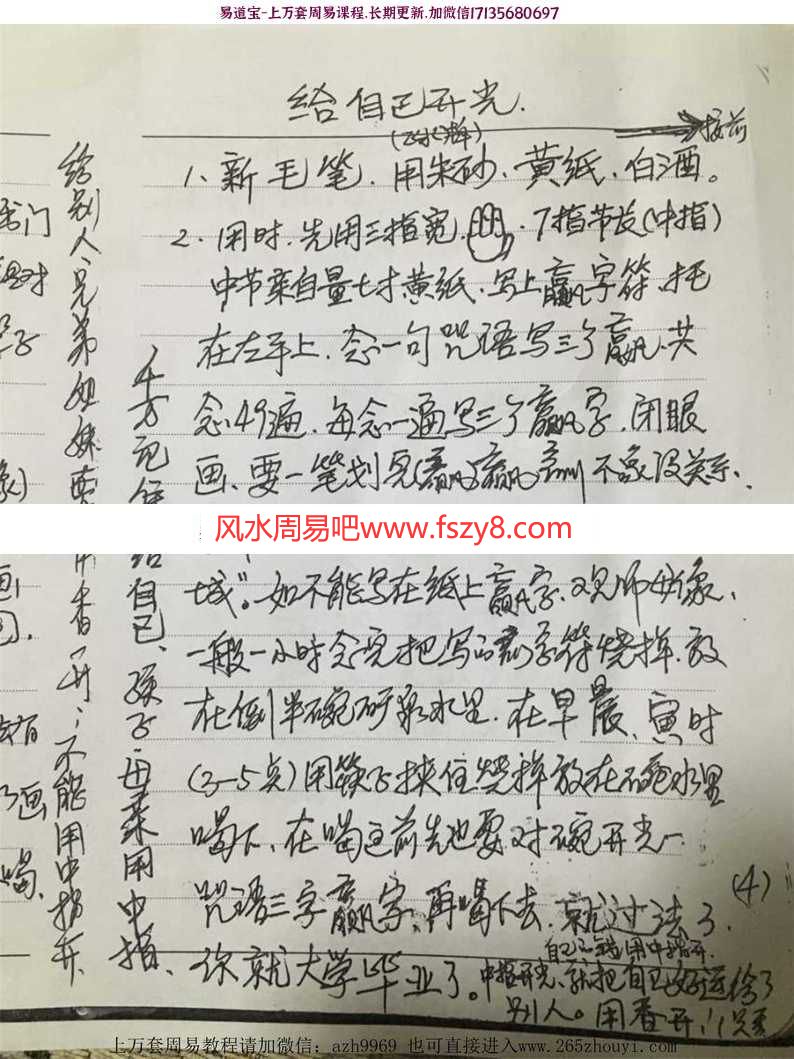 易道宝-上万套周易课程.长期更新.加微信17135680697
给自己开光.
接前
1、新毛笔.用朱砂、黄纸、白酒。
2、用时.先用三指宽.7指节长(中指)
中节来自量七寸黄纸.写上赢字符.托
在左手上.念一句咒语写三个赢.共
念49遍.每念一遍写三个赢字.闭眼
画、要一笔划完(赢)赢 不象没关系、
风水周易吧www.fszy8.com
城"。如不能写在纸上赢字.观师母象、
一般一小时念完把写的赢字符烧掉.放
在倒半碗矿泉水里.在早晨、寅时
(3-5点)用筷子挟住烧掉放在碗水里
喝下、在喝之前先也要对碗开光一
咒语三字赢字、再喝下去.就过法了.
(4)
你就大学毕业了。中指开光、就把自己好运给了
别人。用香开!
给别人、兄弟姐妹
用香开;不能用中指开.
给自己、孩子、母亲用中指、
上万套周易教程请加微信: azh9969 也可直接进入www.265zhouyi.com